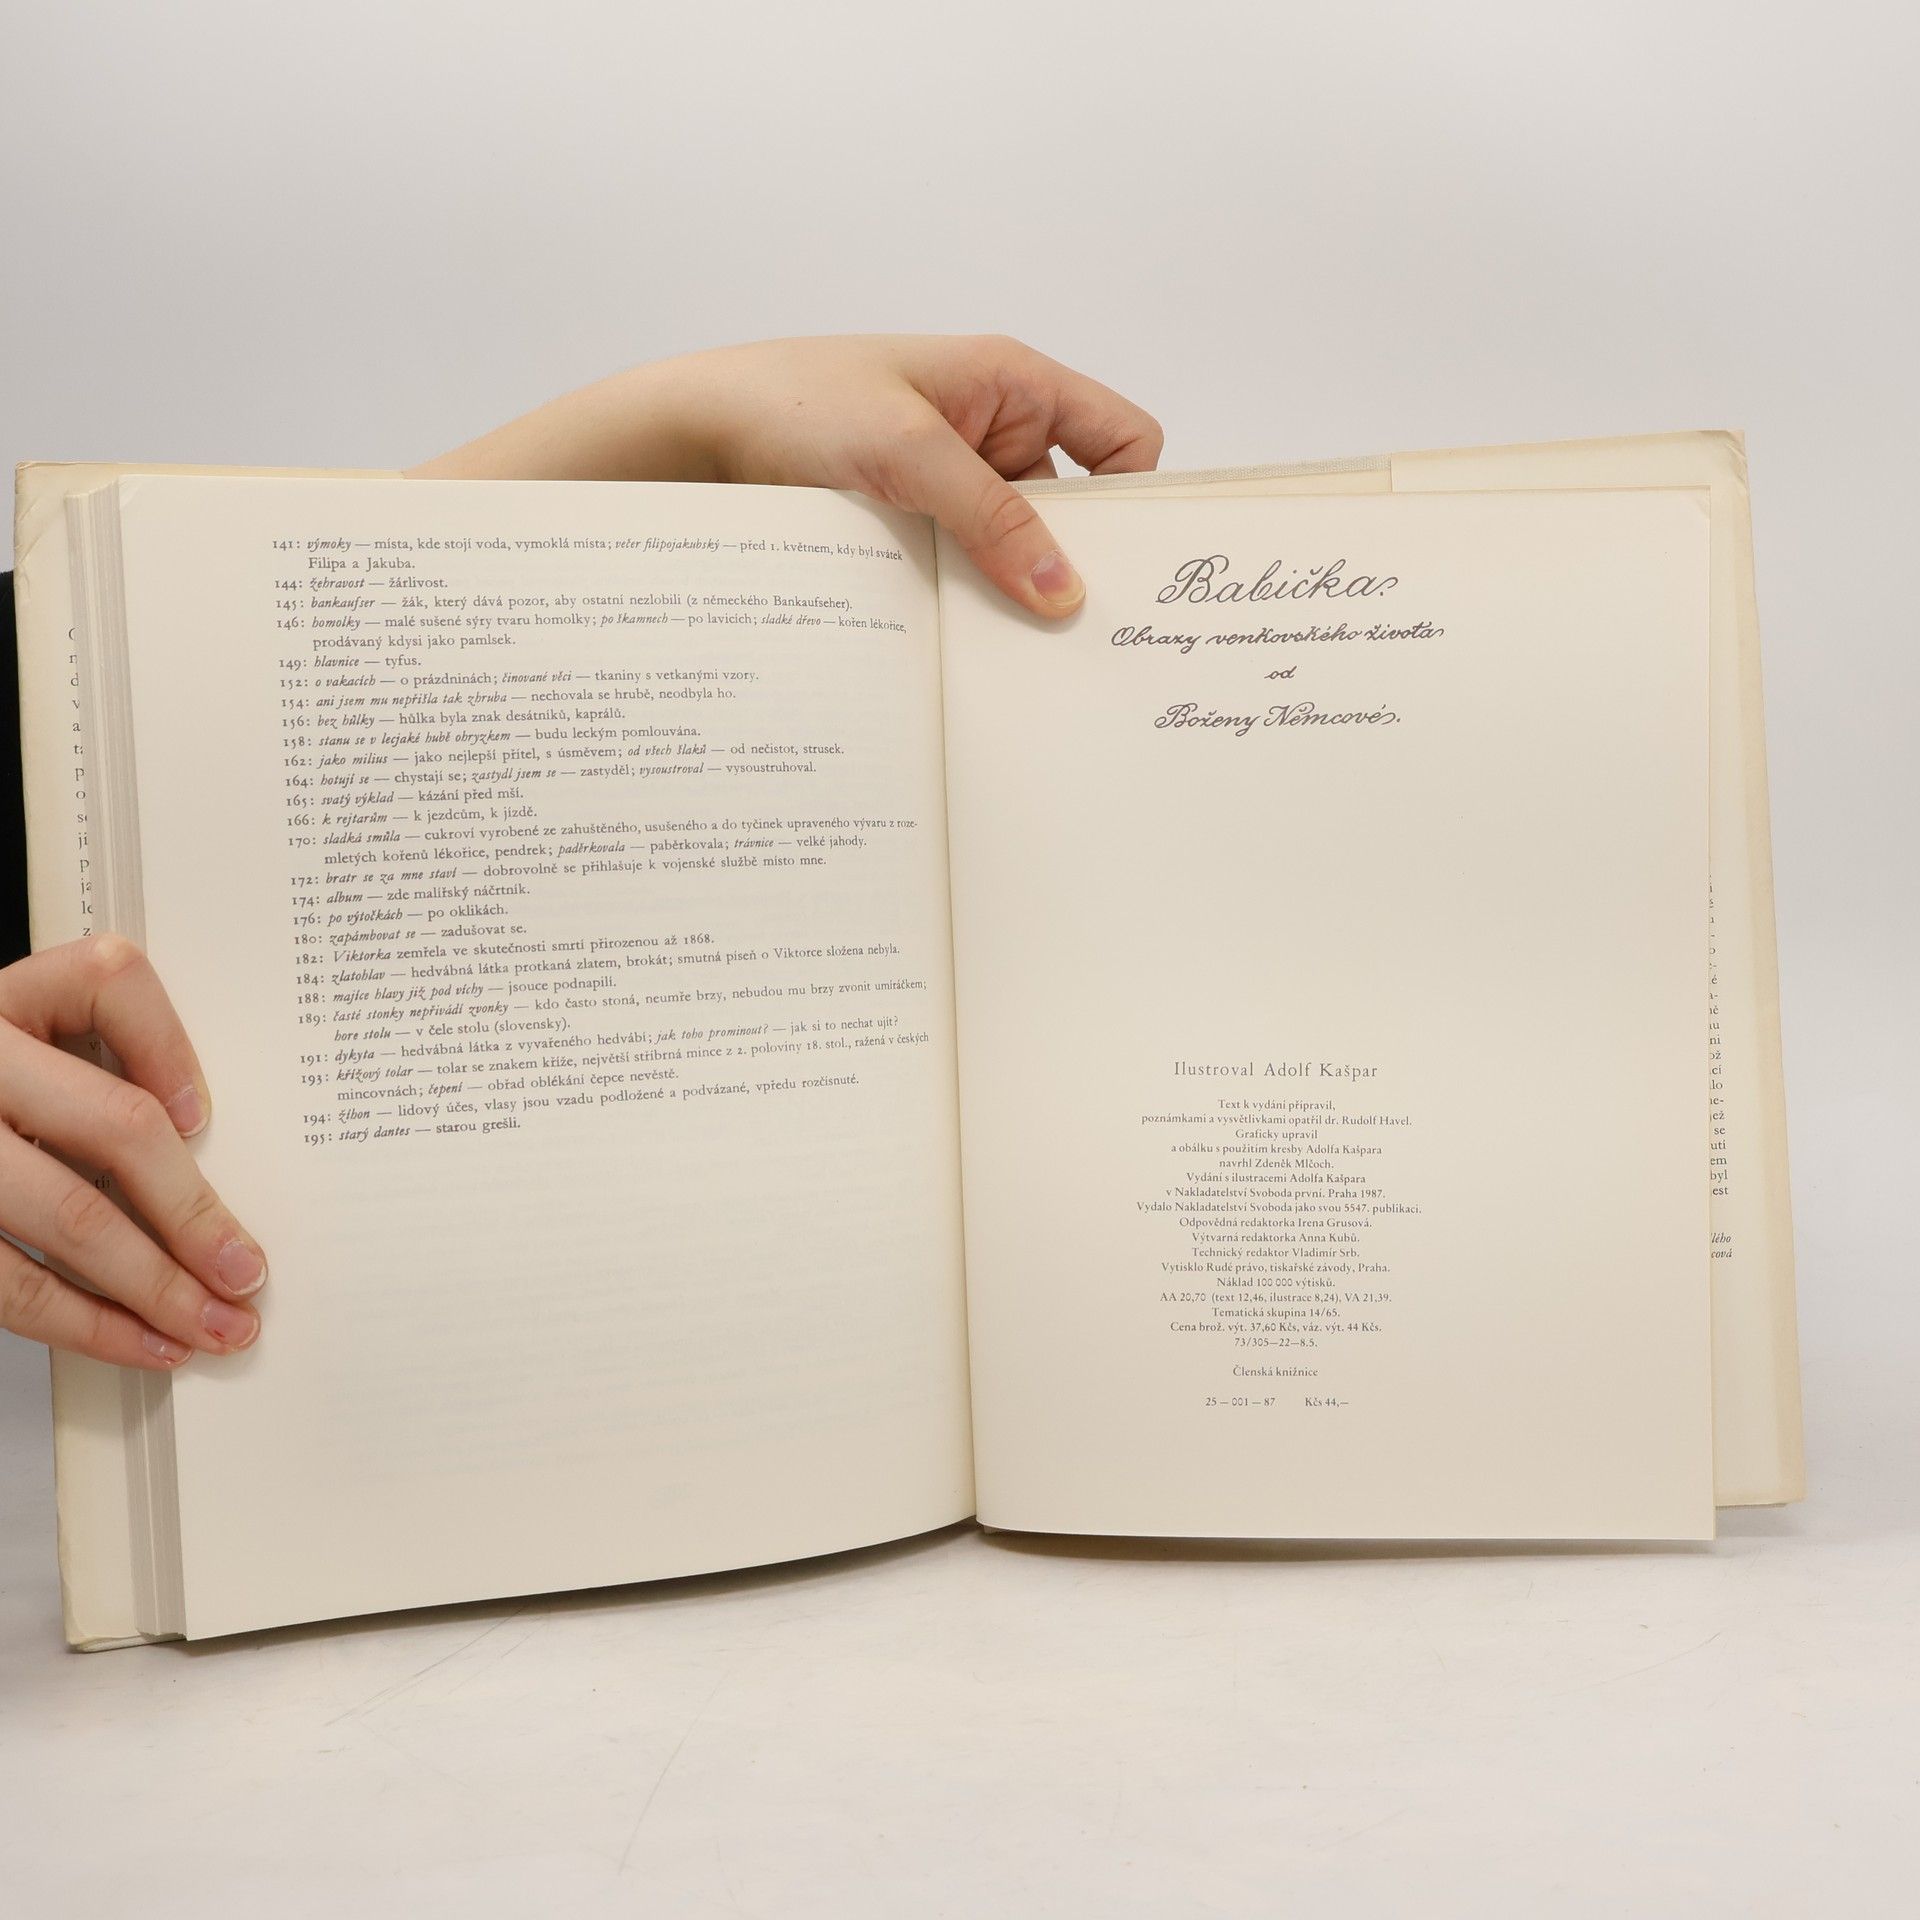 141: výmoky — místa, kde stojí voda, vymoklá místa; večer filipojakubský — před 1. květnem, kdy byl svátek
Filipa a Jakuba.
144: žehravost — žárlivost.
145: bankaufser — žák, který dává pozor, aby ostatní nezlobili (z německého Bankaufseher).
146: homolky — malé sušené sýry tvaru homolky; po škamnech — po lavicích; sladké dřevo — kořen lékořice,
prodávaný kdysi jako pamlsek.
149: hlavnice — tyfus.
152: o vakacích — o prázdninách; činované věci — tkaniny s vetkanými vzory.
154: ani jsem mu nepřišla tak zhruba — nechovala se hrubě, neodbyla ho.
156: bez hůlky — hůlka byla znak desátníků, kaprálů.
158: stanu se v lecjaké hubě ohryzkem — budu leckým pomlouvána.
162: jako milius — jako nejlepší přítel, s úsměvem; od všech šlaků — od nečistot, strusek.
164: hotují se — chystají se; zastydl jsem se — zastyděl; vysoustroval — vysoustruhoval.
165: svatý výklad — kázání před mší.
166: k rejtarům — k jezdcům, k jízdě.
170: sladká smůla — cukroví vyrobené ze zahuštěného, usušeného a do tyčinek upraveného vývaru z roze-
mletých kořenů lékořice, pendrek; paděrkovala — paběrkovala; trávnice — velké jahody.
172: bratr se za mne staví — dobrovolně se přihlašuje k vojenské službě místo mne.
174: album — zde malířský náčrtník.
176: po výtočkách — po oklikách.
180: zapámbovat se — zadušovat se.
182: Viktorka zemřela ve skutečnosti smrtí přirozenou až 1868.
184: zlatohlav — hedvábná látka protkaná zlatem, brokát; smutná píseň o Viktorce složena nebyla.
188: majíce hlavy již pod víchy — jsouce podnapilí.
189: časté stonky nepřivádí zvonky — kdo často stoná, neumře brzy, nebudou mu brzy zvonit umíráčkem;
hore stolu — v čele stolu (slovensky).
191: dykyta — hedvábná látka z vyvařeného hedvábí; jak toho prominout? — jak si to nechat ujít?
193: křížový tolar — tolar se znakem kříže, největší stříbrná mince z 2. poloviny 18. stol., ražená v českých
mincovnách; čepení — obřad oblékání čepce nevěstě.
194: žihon — lidový účes, vlasy jsou vzadu podložené a podvázané, vpředu rozčísnuté.
195: starý dantes — starou grešli.
Babička.
Obrazy venkovského života
od
Boženy Němcové.
Ilustroval Adolf Kašpar
Text k vydání připravil,
poznámkami a vysvětlivkami opatřil dr. Rudolf Havel.
Graficky upravil
a obálku s použitím kresby Adolfa Kašpara
navrhl Zdeněk Mlčoch.
Vydání s ilustracemi Adolfa Kašpara
v Nakladatelství Svoboda první. Praha 1987.
Vydalo Nakladatelství Svoboda jako svou 5547. publikaci.
Odpovědná redaktorka Irena Grusová.
Výtvarná redaktorka Anna Kubů.
Technický redaktor Vladimír Srb.
Vytisklo Rudé právo, tiskařské závody, Praha.
Náklad 100 000 výtisků.
AA 20,70 (text 12,46, ilustrace 8,24), VA 21,39.
Tematická skupina 14/65.
Cena brož. výt. 37,60 Kčs, váz. výt. 44 Kčs.
73/305—22—8.5.
Členská knižnice
25 — 001 — 87 Kčs 44,—